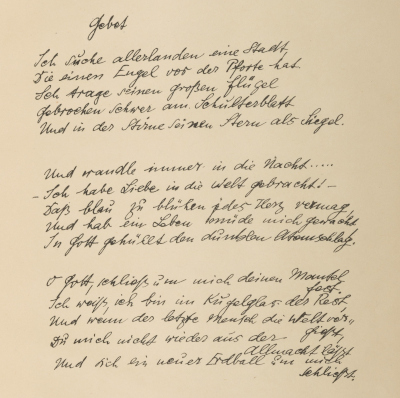 Gebet
Ich suche allerlanden eine Stadt,
Die einen Engel vor der Pforte hat.
Ich trage seinen großen Flügel
Gebrochen schwer am Schulterblatt
Und in der Stirne seinen Stern als Siegel.
Und wandle immer in die Nacht.....
- Ich habe Liebe in die Welt gebracht! -
Daß blau zu blühen jedes Herz vermag,
Und hab ein Leben müde mich gewacht,
In Gott gehüllt den dunklen Atemschlag.
O Gott, schließ um mich deinen Mantel
fest.
Ich weiß, ich bin im Kugelglas der Rest
Und wenn der letzte Mensch die Welt ver-
gießt,
Du mich nicht wieder aus der
Allmacht läßt
Und sich ein neuer Erdball um mich
schließt.